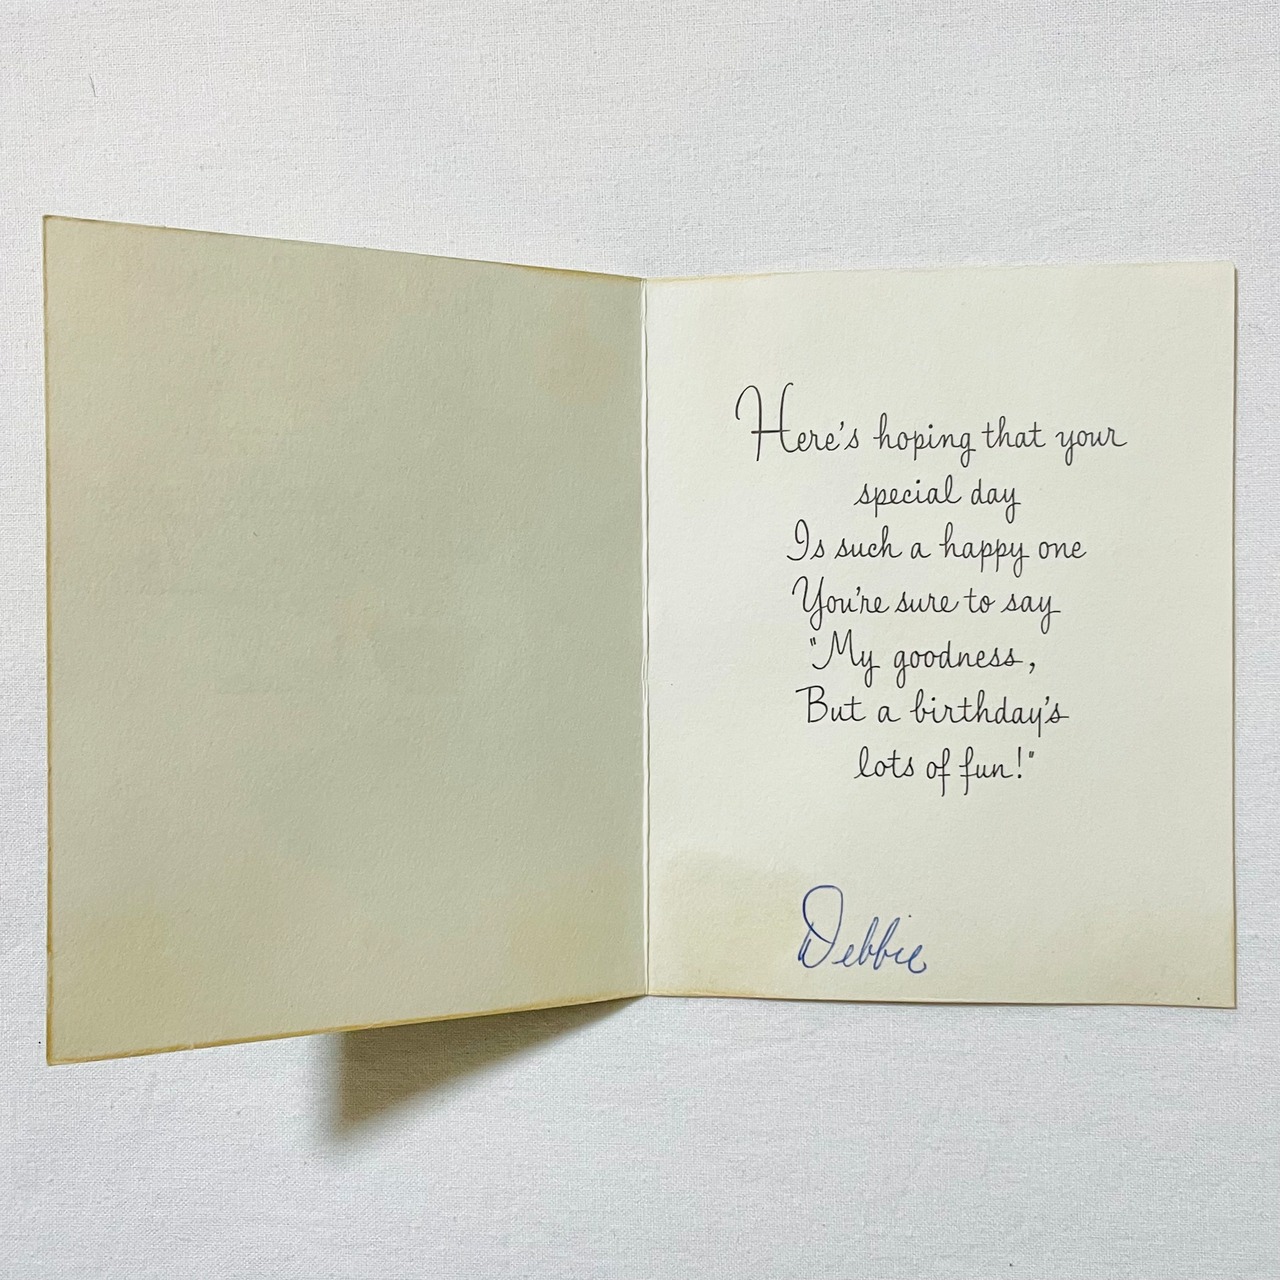 Here's hoping that your
special day
Is such a happy one
You're sure to say
"My goodness,
But a birthday's
lots of fun!"
Debbie